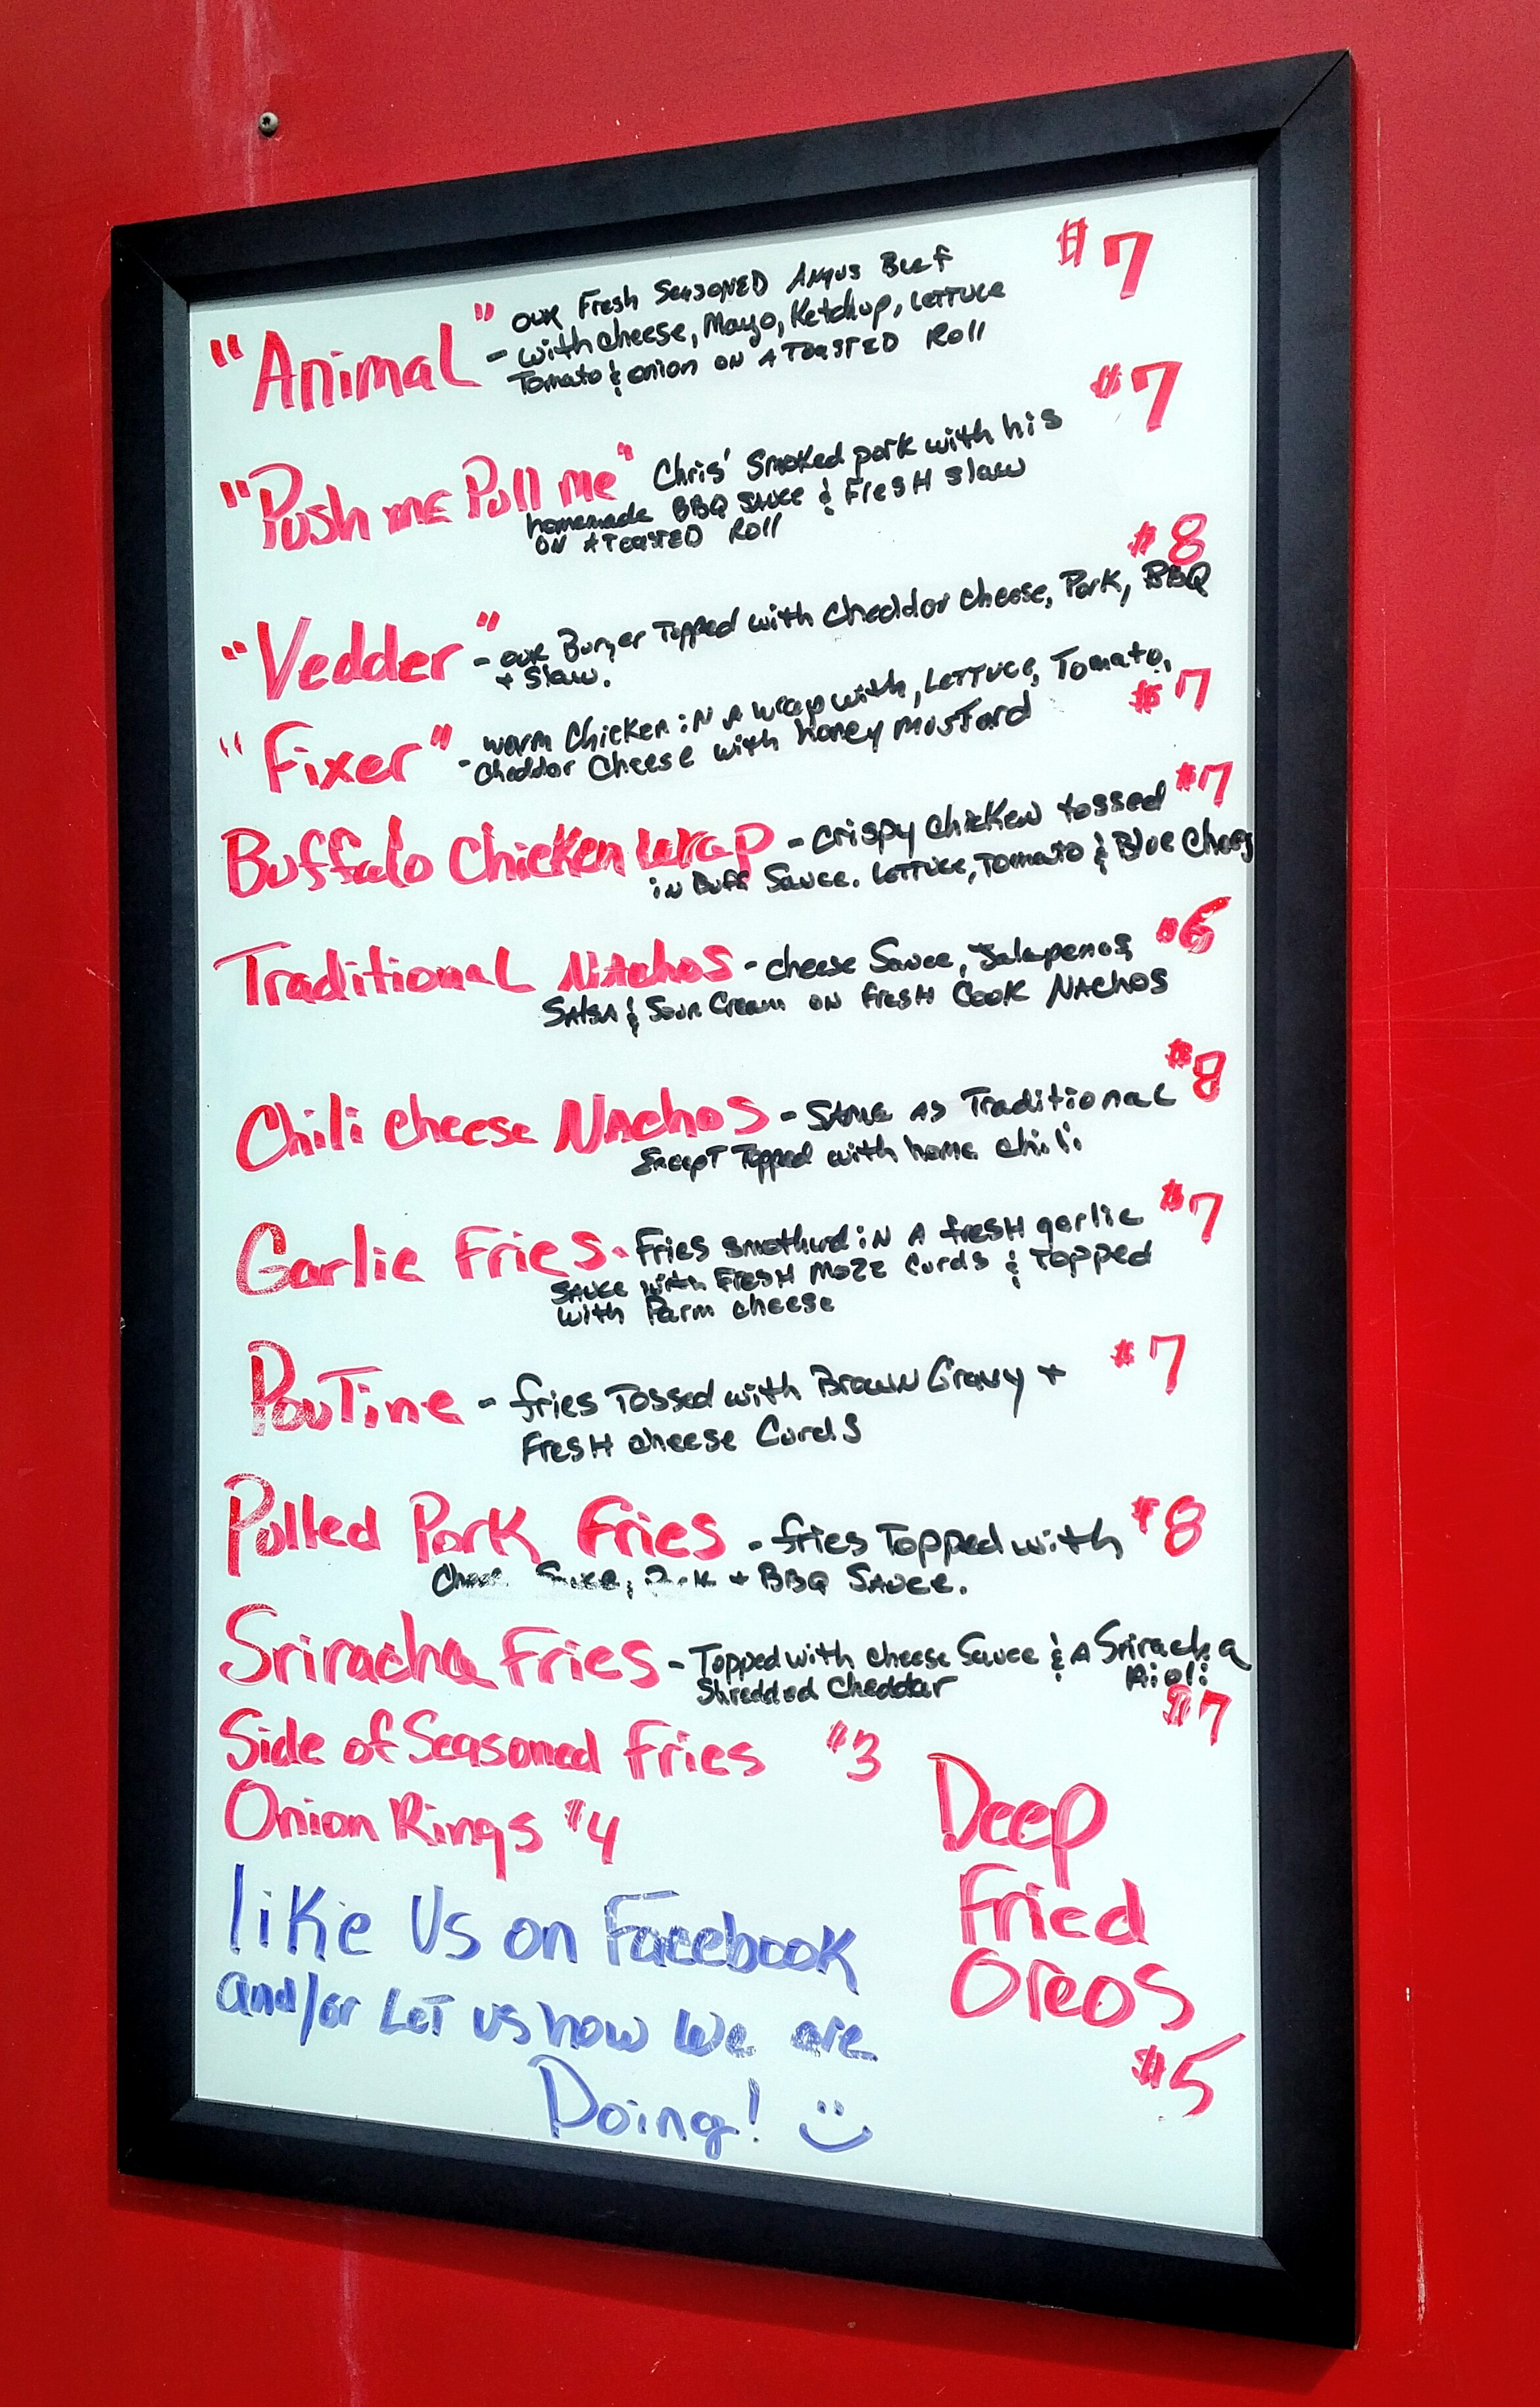 $7
"Animal" - our Fresh Seasoned Angus Beef
with cheese, Mayo, Ketchup, Lettuce
Tomato & onion on a Toasted Roll
$7
"Push me Pull me" Chris' Smoked pork with his
homemade BBQ Sauce & Fresh Slaw
on a Toasted Roll
$8
"Vedder" - our Burger Topped with Cheddar Cheese, Pork, BBQ
+ Slaw.
"Fixer" - warm Chicken in a wrap with, Lettuce, Tomato,
Cheddar Cheese with honey mustard $7
Buffalo Chicken Wrap - crispy chicken tossed $7
in Buff Sauce. Lettuce, Tomato & Blue Chees
Traditional Nachos - cheese Sauce, Jalapenos, $6
Salsa & Sour Cream on fresh Cook Nachos
Chili Cheese Nachos - Same as Traditional $8
Except Topped with home chili
Garlic Fries - Fries smotherd in a fresh garlic $7
sauce with Fresh Mozz Curds & Topped
with Parm cheese
Poutine - fries Tossed with Brown Gravy + $7
Fresh cheese Curds
Pulled Pork Fries - fries Topped with $8
+ BBQ Sauce.
Sriracha Fries - Topped with Cheese Sauce & A Sriracha
Shredded Cheddar Aioli
$7
Side of Seasoned Fries $3
Onion Rings $4
Deep
Fried
Oreos
$5
like Us on Facebook
and/or Let us how We are
Doing!